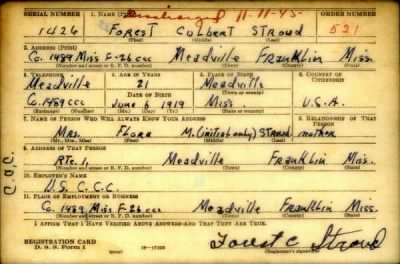 SERIAL NUMBER 1. NAME (Print) Discharged 11-11-45 ORDER NUMBER
1426 FOREST CULBERT STROUD 521
(First) (Middle) (Last)
2. ADDRESS (Print)
Co. 1489 Miss F-26 CCC Meadville Franklin Miss.
(Number and street or R. F. D. number) (Town) (County) (State)
3. TELEPHONE 4. AGE IN YEARS 5. PLACE OF BIRTH 6. COUNTRY OF CITIZENSHIP
Meadville 21 Meadville
DATE OF BIRTH (Town or county)
Co. 1489 CCC June 6 1919 Miss. U.S.A.
(Exchange) (Number) (Mo.) (Day) (Yr.) (State or country)
7. NAME OF PERSON WHO WILL ALWAYS KNOW YOUR ADDRESS 8. RELATIONSHIP OF THAT PERSON
Mrs. Flora M. (initial only) STROUD mother
(Mr., Mrs., Miss) (First) (Middle) (Last)
9. ADDRESS OF THAT PERSON
RTE. 1, Meadville Franklin Miss.
(Number and street or R. F. D. number) (Town) (County) (State)
10. EMPLOYER'S NAME
U.S. C.C.C.
11. PLACE OF EMPLOYMENT OR BUSINESS
Co. 1489 Miss F-26 CCC Meadville Franklin Miss.
(Number and street or R. F. D. number) (Town) (County) (State)
I AFFIRM THAT I HAVE VERIFIED ABOVE ANSWERS AND THAT THEY ARE TRUE.
REGISTRATION CARD
D. S. S. Form 1 Forest C Stroud
(Registrant's signature)
C.C.C.